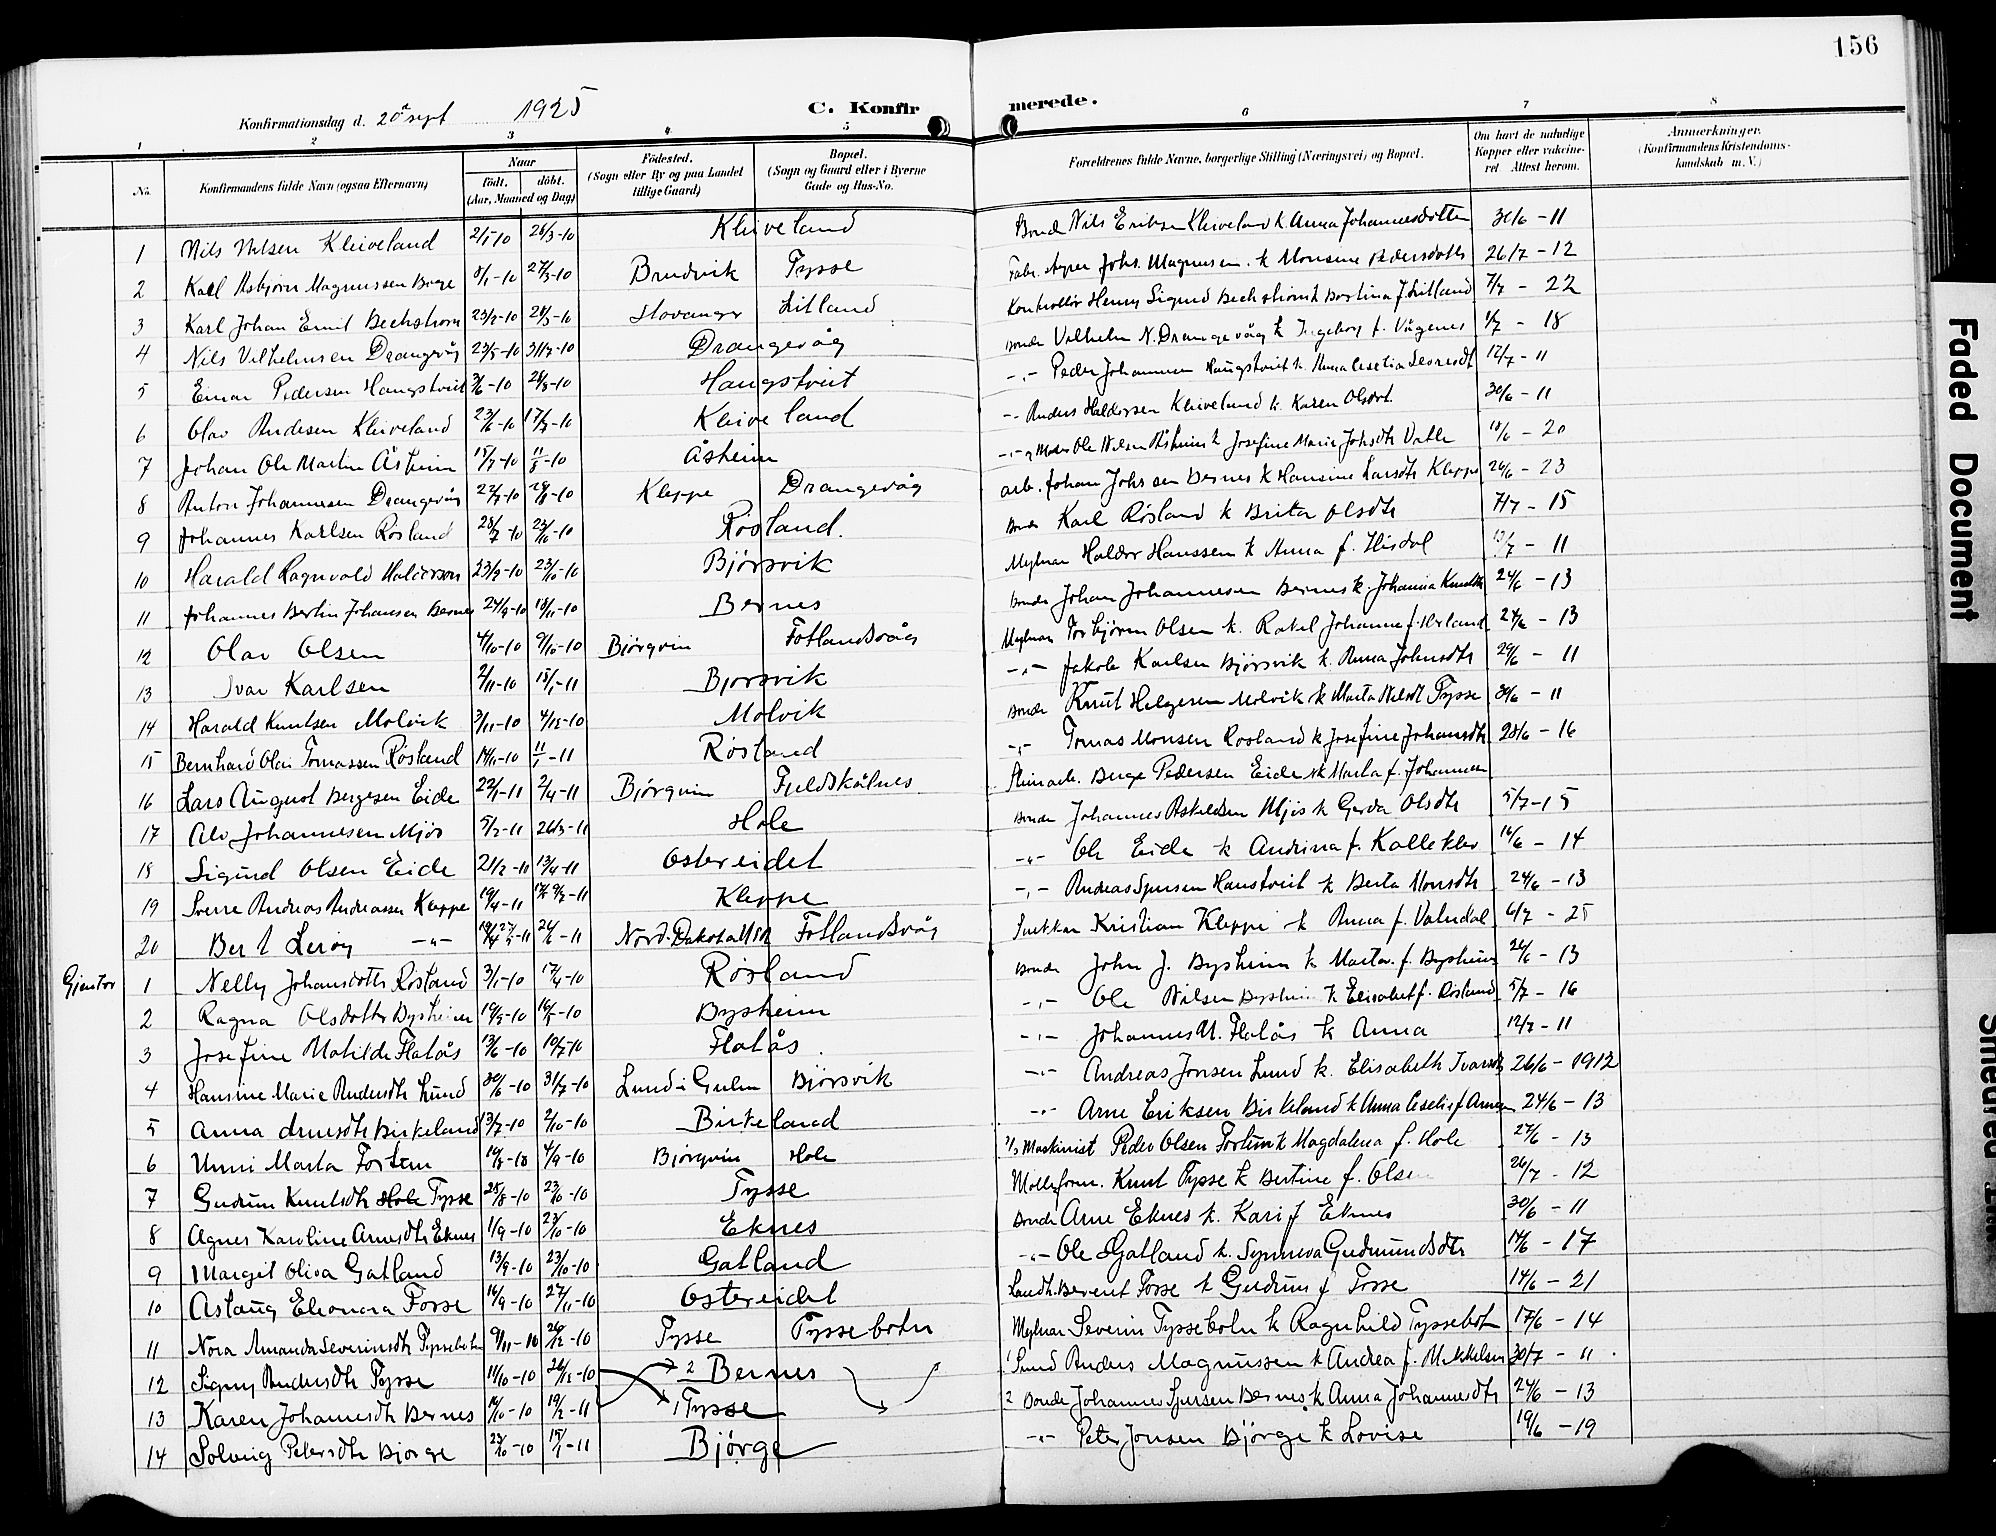 156
Konfirmationsdag d. 20 sept 1925
C. Konfir merede.
1 2 3 4 5 6 7 8
No. Konfirmandens fulde Navn (ogsaa Efternavn) Naar født. døbt. (Aar, Maaned og Dag) Fødested. (Sogn eller By og paa Landet tillige Gaard) Bopæl. (Sogn og Gaard eller i Byerne Gade og Hus-No. Forældrenes fulde Navne, borgerlige Stilling (Næringsvei) og Bopæl. Om havt de naturlige Kopper eller vakcineret Attest herom. Anmerkninger. (Konfirmandens Kristendomskundskab m. V.)
1 Nils Nilsen Kleiveland 2/1-10 26/3-10 Kleiveland Bonde Nils Eriksen Kleiveland k. Anna Johannesdotter 30/6 - 11
2 Karl Asbjørn Magnussen Boge 8/1-10 27/3-10 Brudvik Tysse Johs. Magnussen k Monsine Pedersdotter 26/7 - 12
3 Karl Johan Emil Bechstrøm 23/2-10 Stavanger Litland Kontrollør Henry Sigurd Bechstrøm k Bertina f. Litland 7/7 - 22
4 Nils Vilhelmsen Drangevåg 23/5-10 Drangevåg Bonde Vilhelm N. Drangevåg k Ingeborg f. Vågenes 1/7 - 18
5 Einar Pedersen Haugstveit 3/6-10 28/8-10 Haugstveit -"- Peder Johannesen Haugstveit k. Anna 12/7 - 11
6 Olav Andersen Kleiveland 23/6-10 17/7-10 Kleiveland -"- Anders Haldorsen Kleiveland k. Karen Olsdt. 30/6 - 11
7 Johan Ole Martin Åsheim 15/7-10 11/8-10 Åsheim Ole Nilsen Åsheim k Josefine Marie Johsdtr Vatle 18/6 - 20
8 Anton Johannesen Drangevåg 22/7-10 28/8-10 Kleppe Drangevåg arb. Johan Johssen Bernes k Hansine Larsdtr Kleppe 26/6 - 23
9 Johannes Karlsen Røsland 28/7-10 23/10-10 Røsland. Bonde Karl Røsland k Brita Olsdtr 7/7 - 15
10 Harald Ragnvald Haldorsen 23/9-10 23/10-10 Bjørsvik Mylnar Haldor Hanssen k Anna f. Hisdal 13/7 - 11
11 Johannes Bertin Johansen Bernes 24/9-10 18/11-10 Bernes Bonde Johan Johannesen Bernes k. Johanna Knudtr 24/6 - 13
12 Olav Olsen 4/10-10 9/10-10 Bjørgvin Fotlandsvåg Mylnar Torbjørn Olsen k. Rakel Johanne f. Herland 24/6 - 13
13 Ivar Karlsen 2/11-10 15/1-11 Bjørsvik -"- Jakob Karlsen Bjørsvik k. Anna Johnsdtr 29/6 - 11
14 Harald Knutsen Molvik 3/11-10 4/12-10 Molvik Bonde Knut Helgesen Molvik k Marta Nilsdt Tysse 30/6 - 11
15 Bernhard Olai Tomassen Røsland 14/11-10 11/1-11 Røsland -"- Tomas Monsen Rosland k Josefine Johansdtr 28/6 - 16
16 Lars August Bergesen Eide 22/1-11 2/4-11 Bjørgvin Fuldskålnes Steinarb. Berge Pedersen Eide k Marta f. Johannesen
17 Alv Johannesen Mjøs 5/2-11 26/3-11 Hole Bonde Johannes Askeldsen Mjøs k Gerda Olsdtr 5/7-15
18 Sigurd Olsen Eide 21/2-10 13/4-11 Ostereidet -"- Ole Eide k Andrina f. Kallekleiv 16/6 - 14
19 Sverre Andreas Andreassen Kleppe 19/4-11 Kleppe -"- Andreas Sjursen Haustveit k Berta Monsdtr 24/6 - 13
20 Bert Leroy -"- 24/6-11 Nord-Dakota USA Fotlandsvåg Snekkar Kristian Kleppe k Anna f. Valndal 6/7 - 25
Gjentor
1 Nelly Johansdotter Røsland 3/1-10 17/4-10 Røsland Bonde John J. Bysheim k Marta f. Bysheim 26/6 - 13
2 Ragna Olsdotter Bysheim 19/3-10 16/5-10 Bysheim -"- Ole Nilsen Bysheim k Elisabet f. Rosland 5/7 - 16
3 Josefine Matilde Flatås 13/6-10 10/7-10 Flatås -"- Johannes N. Flatås k Anna 12/7 - 11
4 Hansine Marie Andersdtr Lund 30/6-10 31/7-10 Lund i Gulen Bjørsvik -"- Andreas Jonsen Lund k. Elisabeth Ivarsdtr 26/6 - 1912
5 Anna Arnesdtr Birkeland 13/7-10 2/10-10 Birkeland -"- Arne Eriksen Birkeland k Anna f Arnesen 24/6 - 13
6 Unni Marta Fortun 19/8-10 4/9-10 Bjørgvin Hole Maskinist Peder Olsen Fortun k Magdalena f. Hole 24/6 - 13
7 Gudrun Knutsdtr Hole Tysse 28/8-10 23/10-10 Tysse Mølleform. Knut Tysse k Bertine f. Olsen 26/7 - 12
8 Agnes Karoline Arnesdtr Eknes 1/9-10 23/10-10 Eknes Bonde Arne Eknes k. Kari f Eknes 30/6 - 11
9 Margit Oliva Gatland 13/9-10 23/10-10 Gatland -"- Ole Gatland k. Synneva Gudmundsdtr 14/6 - 17
10 Aslaug Eleonora Fosse 16/9-10 27/11-10 Ostereidet Landh. Berent Fosse k Gudrun f Fosse 14/6 - 21
11 Nora Amanda Severinsdtr Tyssebotn 9/11-10 26/12-10 Tysse Tyssebotn Mylnar Severin Tyssebotn k Ragnhild Tyssebot 17/6 - 14
12 Signy Andersdtr Tysse 11/10-10 26/12-10 2 Bernes 1 Smed Anders Magnussen k Andrea f. Mikkelsen 30/7 - 11
13 Karen Johannesdtr Bernes 14/10-10 19/2-11 1 Tysse 2 Bonde Johannes Sjursen Bernes k Anna Johannesdtr 24/6 - 13
14 Solveig Petersdtr Bjørge 23/10-10 15/1-11 Bjørge -"- Peter Jonsen Bjørge k Lovise 19/6 - 19
Faded Document
Smeared Ink